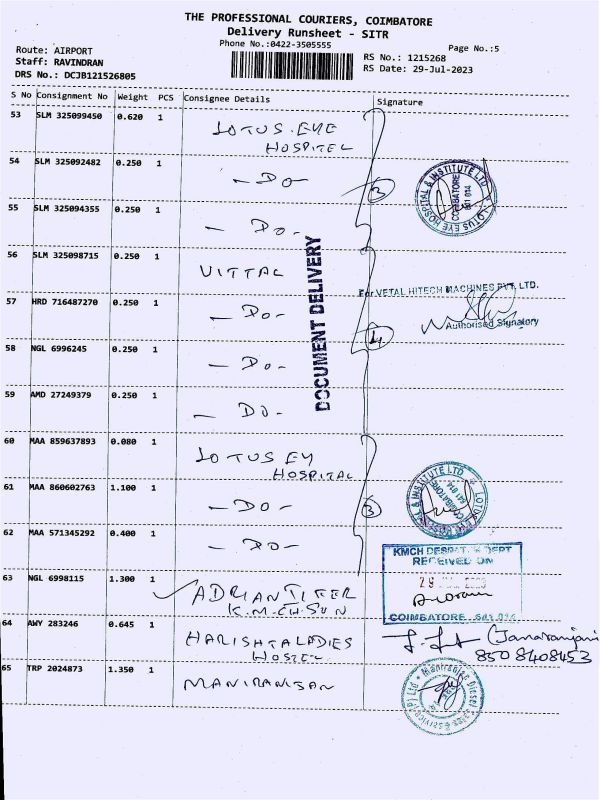 THE PROFESSIONAL COURIERS, COIMBATORE
Delivery Runsheet - SITR
Phone No.:0422-3505555
Page No.:5
Route: AIRPORT
Staff: RAVINDRAN
DRS No.: DCJB121526805
RS No.: 1215268
RS Date: 29-Jul-2023
S No Consignment No Weight PCS Consignee Details Signature
53 SLM 325099450 0.620 1 LOTUS EYE
HOSPITEL
54 SLM 325092482 0.250 1 - DO - 3
LOTUS EYE HOSPITAL & INSTITUTE LTD
COIMBATORE
641 014
55 SLM 325094355 0.250 1 - DO -
56 SLM 325098715 0.250 1 VITTAL
DOCUMENT DELIVERY
For VETAL HITECH MACHINES PVT. LTD.
57 HRD 716487270 0.250 1 - DO - 4
Authorised Signatory
58 NGL 6996245 0.250 1 - DO -
59 AMD 27249379 0.250 1 - DO -
60 MAA 859637893 0.080 1 LOTUS EY
HOSPITAL
61 MAA 860602763 1.100 1 - DO - 3
& INSTITUTE LTD
COIMBATORE
641 014
62 MAA 571345292 0.400 1 - DO -
KMCH DESPATCH DEPT
RECEIVED ON
63 NGL 6998115 1.300 1
COIMBATORE
64 AWY 283246 0.645 1 HARISHTALADIES
HOSTEL
(Janaranjani
8508408453
65 TRP 2024873 1.350 1 MANIRANJAN
Maniranjan Diesel
Sales & Service (P) Ltd